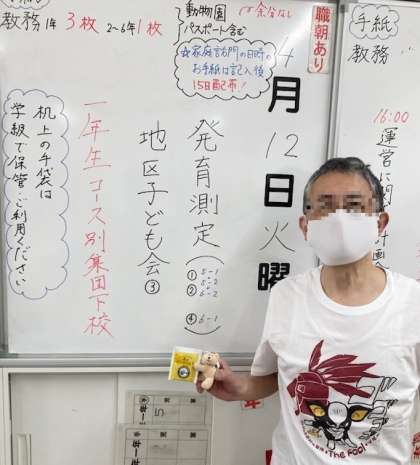 手紙
教務 1年 3枚 2〜6年 1枚
動物園
パスポート含む
余分なし
☆家庭訪問の日時の
お手紙は記入後
15日配布!
職朝あり
4月12日火曜
発育測定
① 5-1
5-2
② 6-2
④ 6-1
地区子ども会③
一年生コース別集団下校
机上の手袋は
学級で保管・ご利用ください。
手紙
教務
16:00
運営に関
計画
The Fool